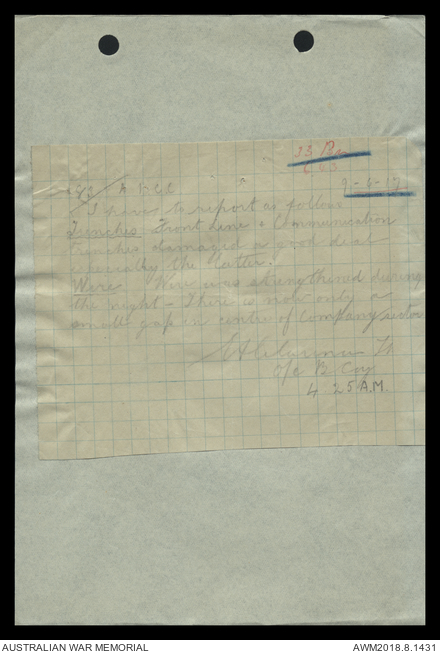 33 Bn
9-6-17
I have to report as follows
Trenches Front Line + Communication
trenches damaged a good deal
especially the latter.
Wire Wire was strengthened during
the night - There is now only a
small gap in centre of Company sector
Lt
o/c B Coy
4 25 A.M.
AUSTRALIAN WAR MEMORIAL
AWM2018.8.1431